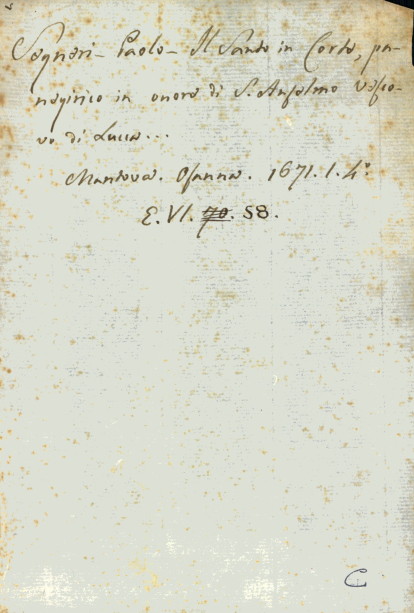 Segneri - Paolo - Il Santo in Corte, pa-
negirico in onore di S. Anselmo Vesco-
vo di Lucca...
Mantova. Osanna. 1671. 1. 4°.
E. VI. 70. 58.
C